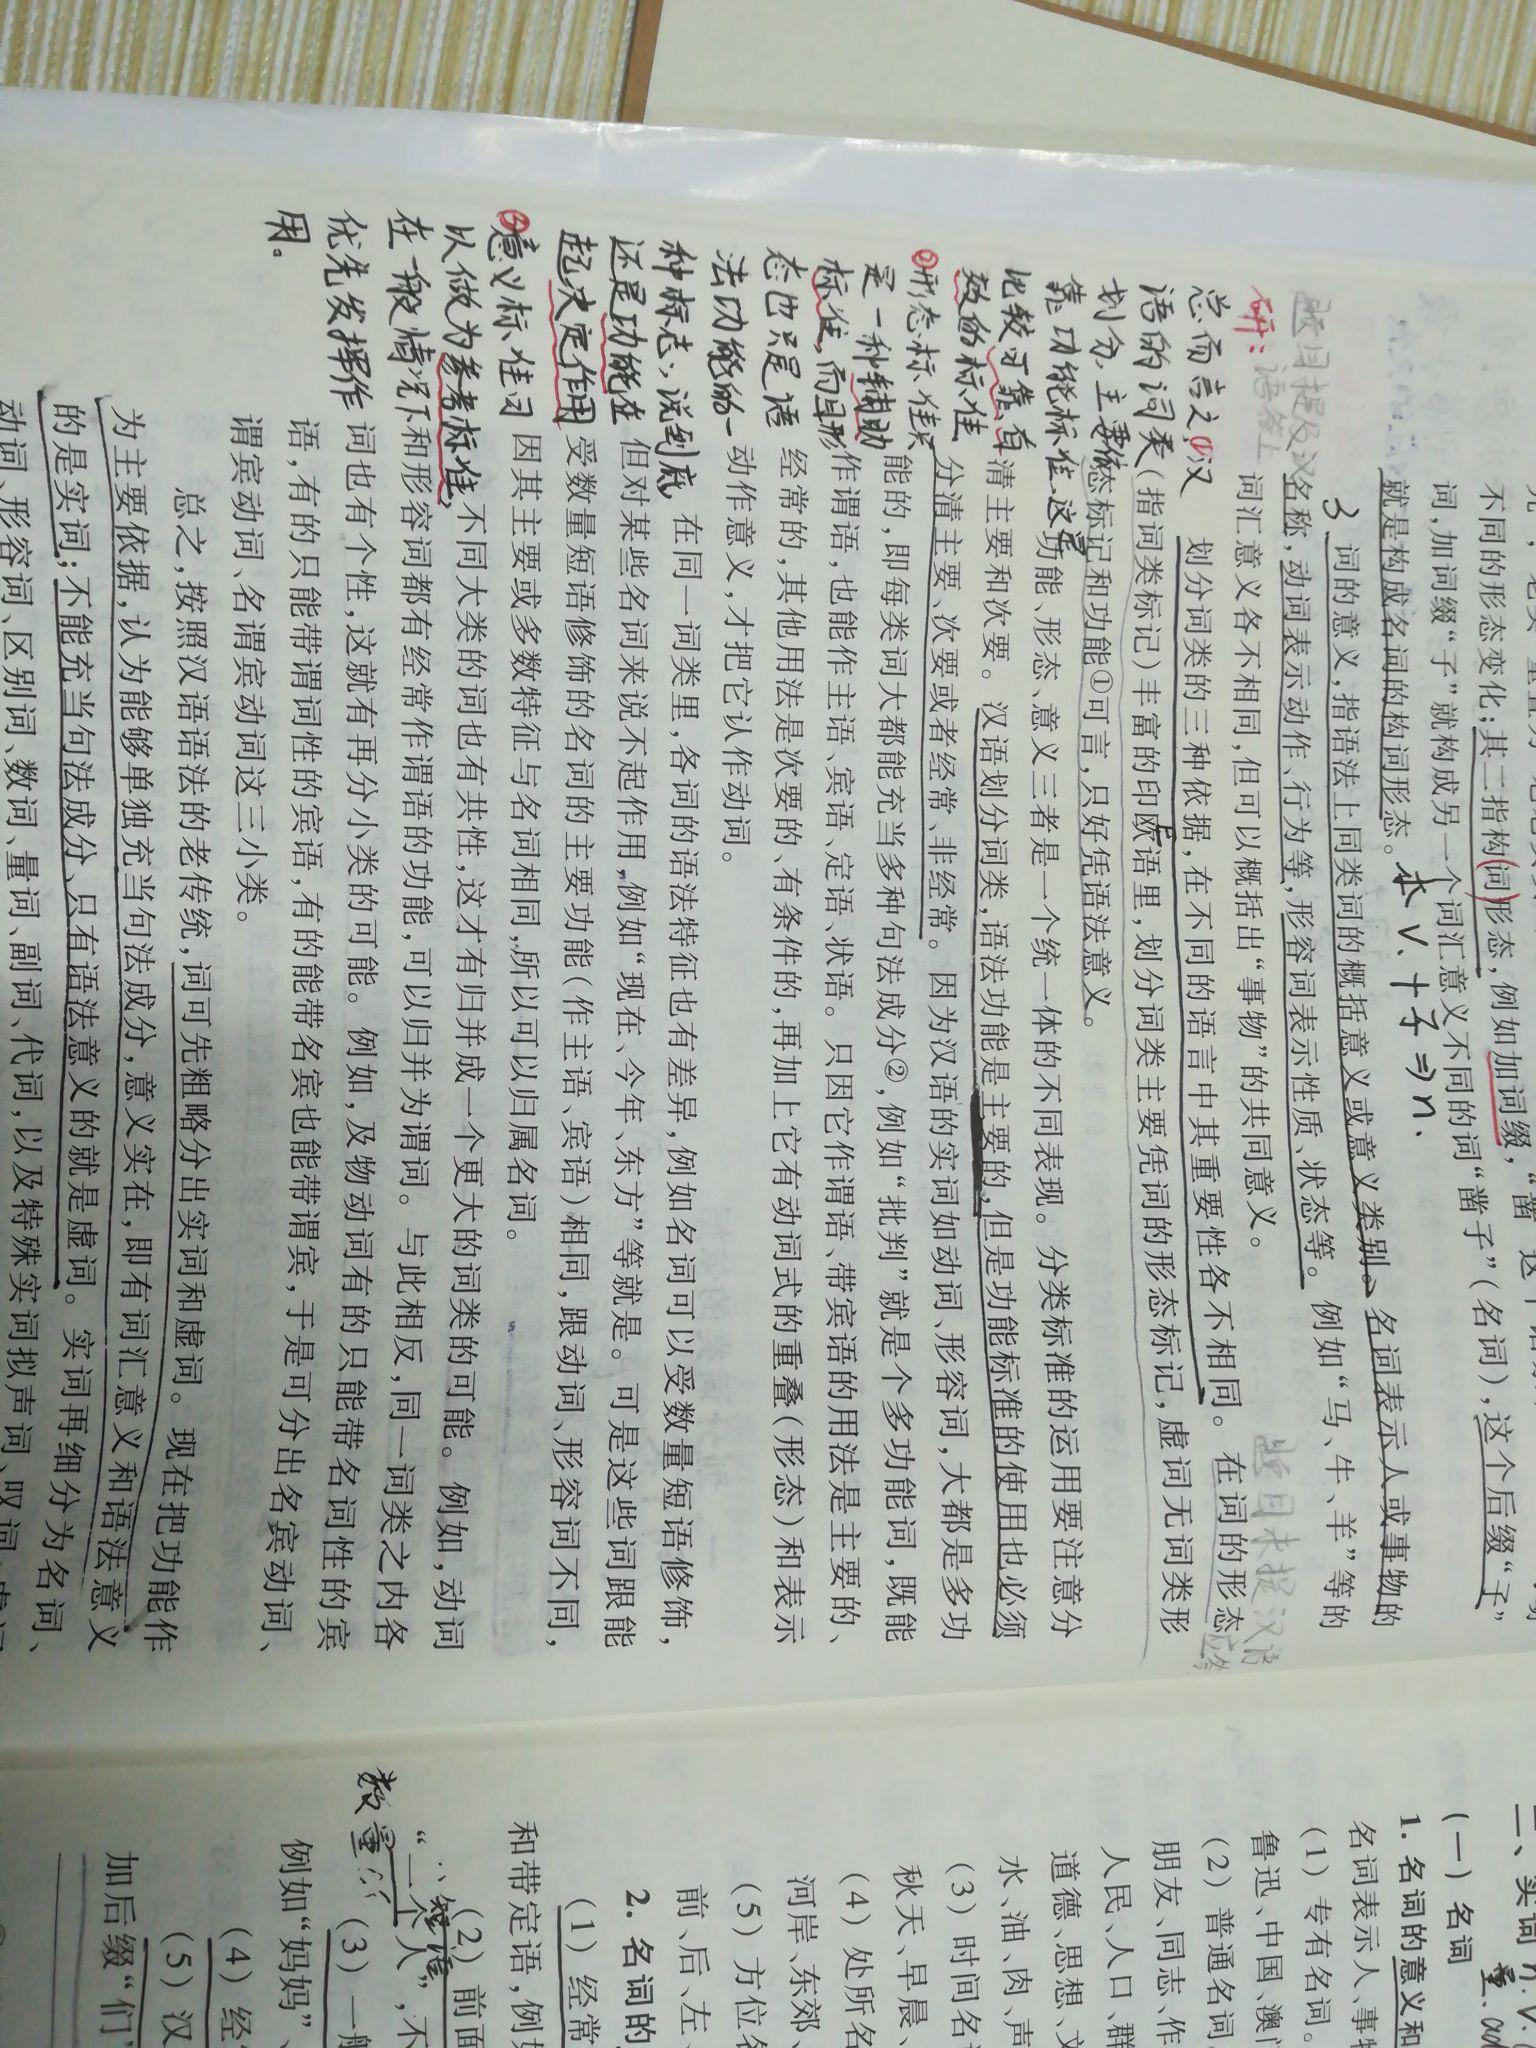 不同的形态变化；其二指构词形态，例如加词缀，“凿”这个
词，加词缀“子”就构成另一个词汇意义不同的词“凿子”（名词），这个后缀“子”
就是构成名词的构词形态。
水 V. 十子⇒n.
3 词的意义，指语法上同类词的概括意义或意义类别。名词表示人或事物的
名称，动词表示动作、行为等，形容词表示性质、状态等。例如“马、牛、羊”等的
词汇意义各不相同，但可以概括出“事物”的共同意义。
划分词类的三种依据，在不同的语言中其重要性各不相同。在词的形态
（指词类标记）丰富的印欧语里，划分词类主要凭词的形态标记，虚词无词类形
态标记和功能①可言，只好凭语法意义。
功能、形态、意义三者是一个统一体的不同表现。分类标准的运用要注意分
清主要和次要。汉语划分词类，语法功能是主要的，但是功能标准的使用也必须
分清主要、次要或者经常、非经常。因为汉语的实词如动词、形容词，大都是多功
能的，即每类词大都能充当多种句法成分②，例如“批判”就是个多功能词，既能
作谓语，也能作主语、宾语、定语、状语。只因它作谓语、带宾语的用法是主要的、
经常的，其他用法是次要的、有条件的，再加上它有动词式的重叠（形态）和表示
动作意义，才把它认作动词。
在同一词类里，各词的语法特征也有差异，例如名词可以受数量短语修饰，
但对某些名词来说不起作用，例如“现在、今年、东方”等就是。可是这些词跟能
受数量短语修饰的名词的主要功能（作主语、宾语）相同，跟动词、形容词不同，
因其主要或多数特征与名词相同，所以可以归属名词。
不同大类的词也有共性，这才有归并成一个更大的词类的可能。例如，动词
和形容词都有经常作谓语的功能，可以归并为谓词。与此相反，同一词类之内各
词也有个性，这就有再分小类的可能。例如，及物动词有的只能带名词性的宾
语，有的只能带谓词性的宾语，有的能带名宾也能带谓宾，于是可分出名宾动词、
谓宾动词、名谓宾动词这三小类。
总之，按照汉语语法的老传统，词可先粗略分出实词和虚词。现在把功能作
为主要依据，认为能够单独充当句法成分，意义实在，即有词汇意义和语法意义
的是实词；不能充当句法成分、只有语法意义的就是虚词。实词再细分为名词、
动词、形容词、区别词、数词、量词、副词、代词，以及特殊实词拟声词、叹词
题目提及汉
语答上
研：
总而言之，①汉
语的词类
划分，主要依
靠功能标准，这是
比较可靠有
效的标准
②形态标准只
是一种辅助
标准，而且形
态也只是语
法功能的一
种标志，说到底
还是功能在
起决定作用
③意义标准可
以做为参考标准，
在一般情况下
优先发挥作
用。
题目未提汉语
二、实词
（一）名词
1. 名词的意义和
名词表示人、事物
（1）专有名词。
鲁迅、中国、澳门
（2）普通名词。
朋友、同志、作
人民、人口、群
道德、思想、文
水、油、肉、声
（3）时间名
秋天、早晨、
（4）处所名
河岸、东郊、
（5）方位名
前、后、左、
2. 名词的
（1）经常
和带定语，例如
（2）前面
“一个人”，不
（3）一般
例如“妈妈”、
（4）经
（5）汉
加后缀“们”
数量
短语